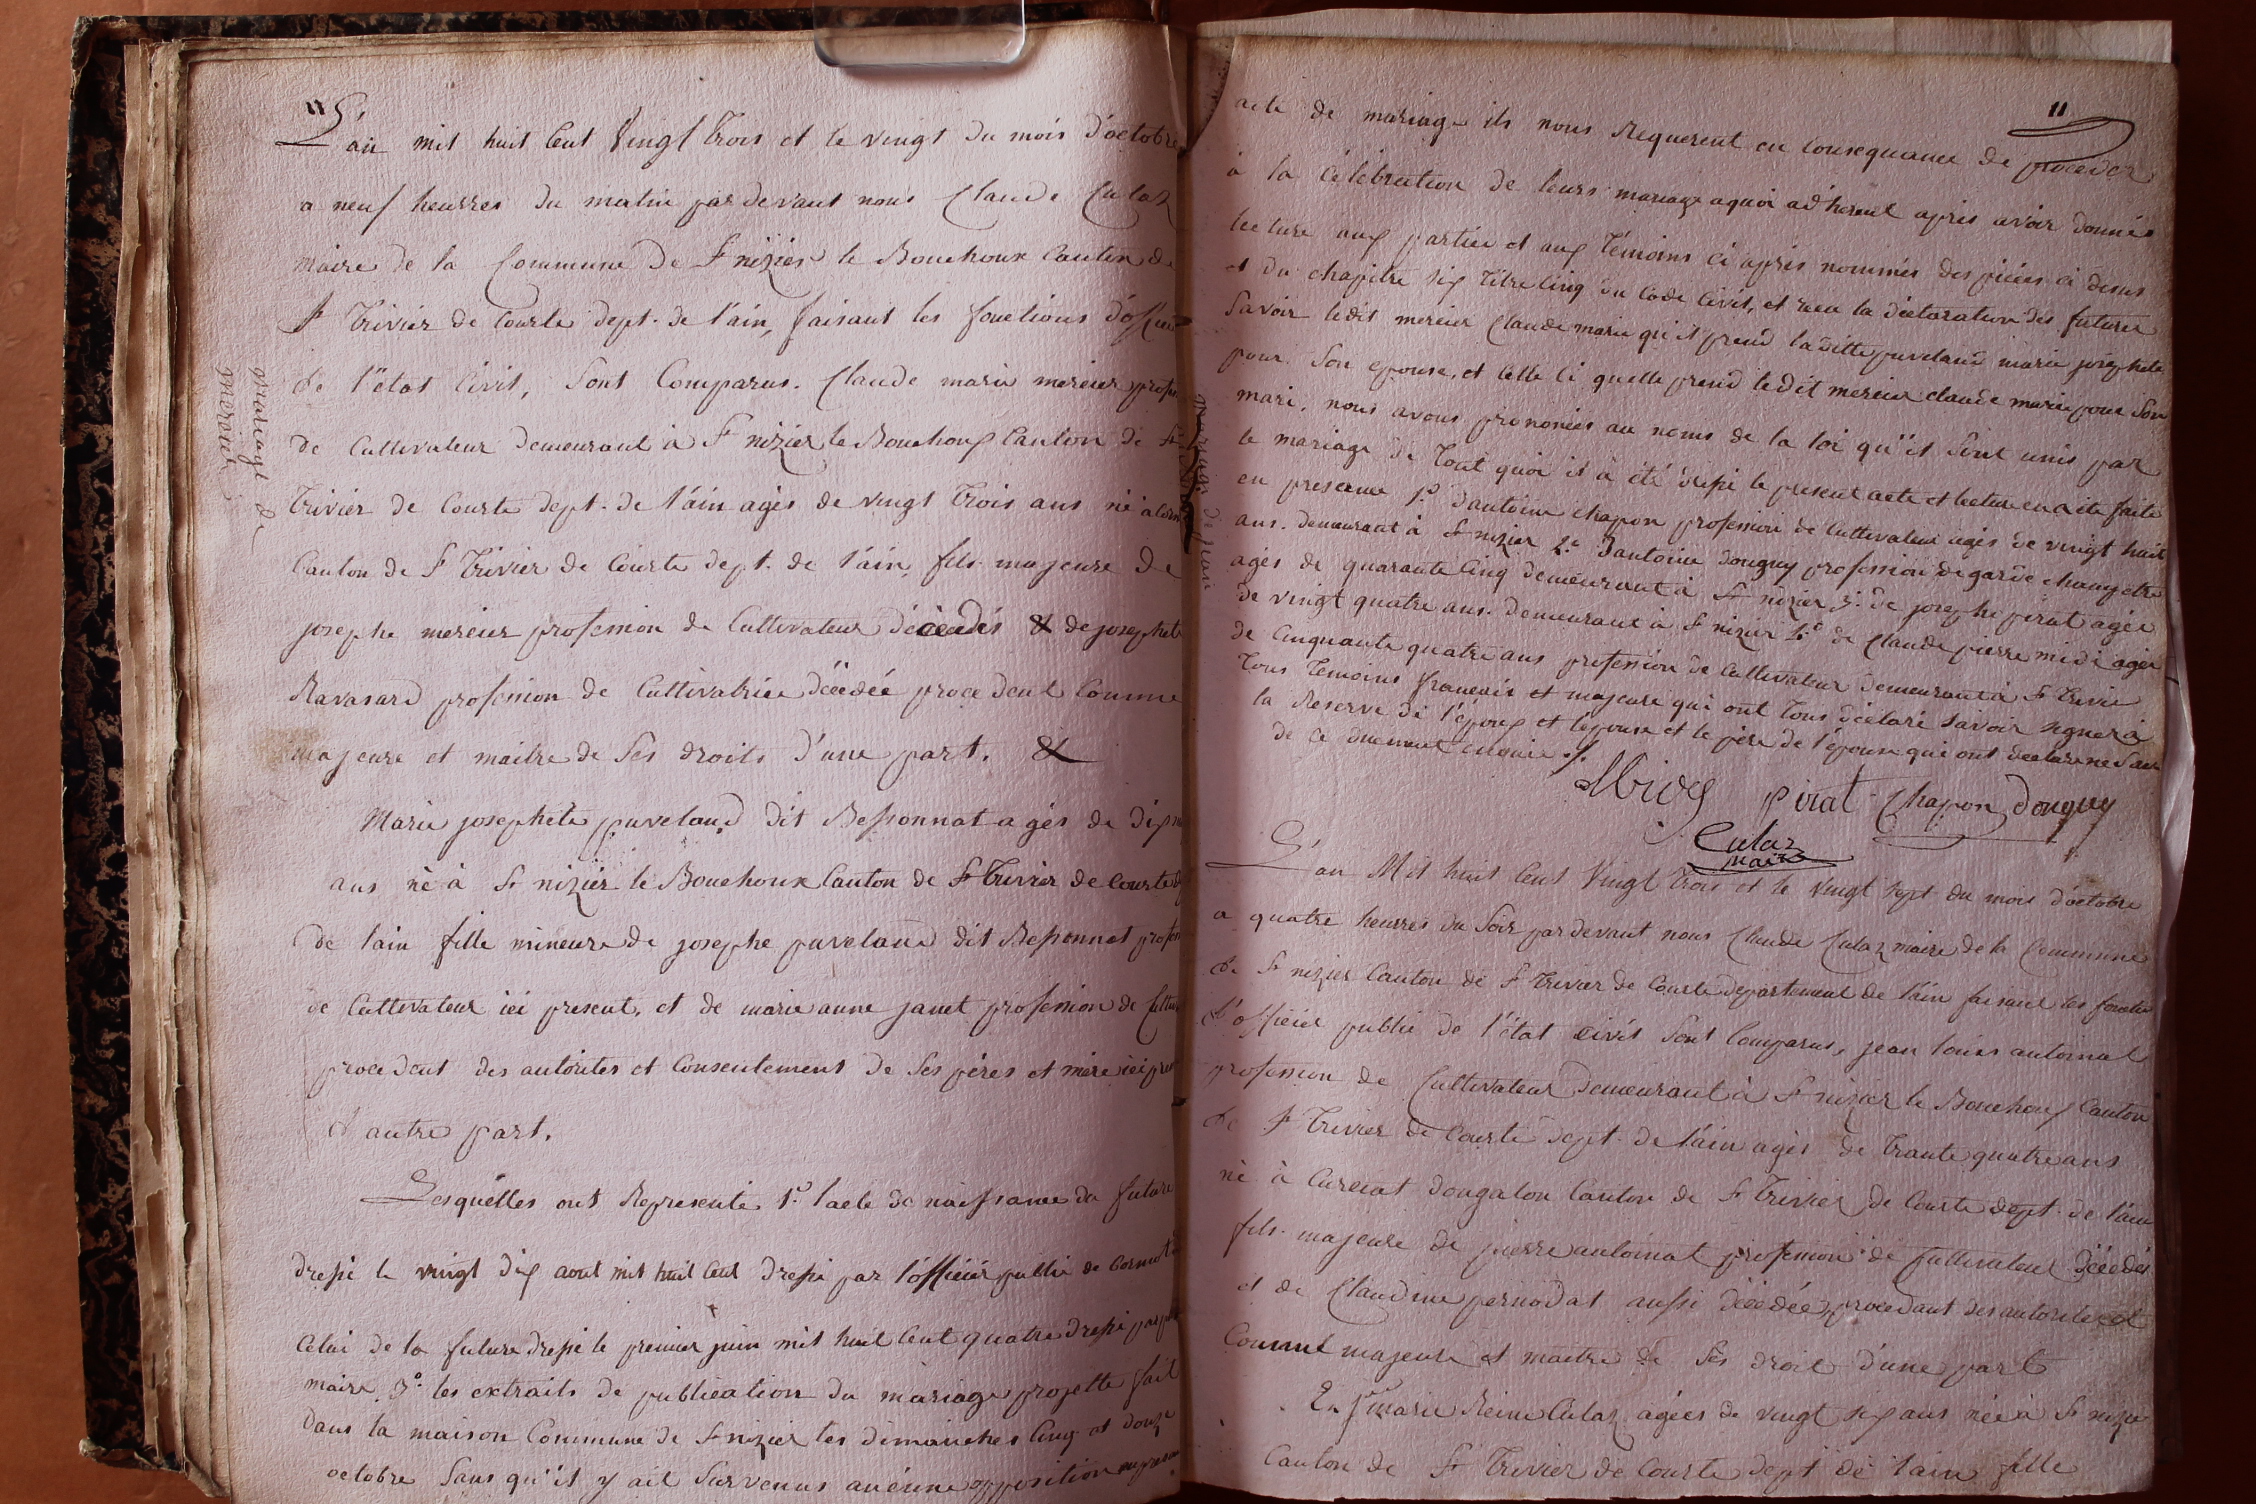 11
L'an mil huit Cent Vingt trois et le vingt du mois d'octobre
a neuf heurres du matin par devant nous Claude Culaz
maire de la Commune de St nizier le Bouchoux Canton de
St Trivier de Courte dept. de l'ain, faisant les fonctions d'offici
de l'etat Civil, Sont Comparus. Claude marie mercier profes
de Cultivateur demeurant à St nizier le Bouchoux Canton de St
Trivier de Courte dept. de l'ain agés de vingt trois ans né a Corm
Canton de St Trivier de Courte dept. de l'ain, fils majeure de
josephe mercier profession de Cultivateur décédés & de josephete
Ravasard profession de Cultivatrice décédée procedent Comme
majeure et maitre de Ses droits d'une part. &
mariage de
mercier
Marie josephete puveland dit Bessonnat agés de dix n
ans né à St nizier le Bouchoux Canton de St Trivier de Courte d
de lain fille mineure de josephe puveland dit Bessonnat profes
de Cultivateur ici present, et de marie anne janet profession de Cultiv
procedent des autorites et Consentement de Ses péres et mére ici pres
d autre part.
Lesquelles ont Representé 1.º l'acte de naissance du future
dressé le vingt dix aout mil huit Cent dressé par l'officier public de Cormot
Celui de la future dressé le premier juin mil huit Cent quatre dressé par
maire 3º les extraits de publication du mariage projetté fait
dans la maison Commune de St nizier les dimanches Cinq et douze
octobre Sans qu'il y ait Survenus aucune opposition au present
11
acte de mariage ils nous Requerent en Consequance de proceder
à la célébration de leurs mariage aquoi adherent après avoir donnée
lecture aux partie et aux témoins ci après nommés des piéces ci desus
et du chapitre six titre Cinq du Code Civil, et recu la déclaration des futures
Savoir ledit mercier Claude marie qu'il prend laditte puveland marie josephete
pour Son epouse, et Celle Ci quelle prend ledit mercier claude marie pour Son
mari. nous avons prononcés au noms de la loi qu'il Sont unis par
le mariage de Tout quoi il à été dressé le present acte et lecture en a ete faite
en presence 1.º d'antoine chapon profession de Cultivateur agés de vingt huit
ans. demeurant à St nizier 2.º d'antoine douguy profession de garde champetre
agés de quarante Cinq demeurant à St nizier 3.º de josephe pirat agée
de vingt quatre ans. demeurant à St nizier 4.º de Claude pierre midi agée
de Cinquante quatre ans profession de Cultivateur demeurant à St trivie
Tous Temoins francais et majeure qui ont Tous déclaré Savoir signer à
la Reserve de l'époux et lepouse et le pére de l'épouse qui ont declare ne Sav
de Ce duement enquis ./.
pirat Chapon Douguy
Culaz
maire
L'an Mil huit Cent Vingt trois et le vingt sept du mois d'octobre
a quatre heurres du Soir par devant nous Claude Culaz maire de la Commune
de St nizier Canton de St Trivier de Courte departement de l'ain faisant les fonctio
d'officier public de l'état civil Sont Comparus, jean louis antoinat
profession de Cultivateur demeurant à St nizier le Bouchoux Canton
de St Trivier de Courte dept. de l'ain agés de trante quatre ans
né à Curciat dongalon Canton de St Trivier de Courte dept. de l'ain
fils majeure de pierre antoinat profession de Cultivateur décédés
et de Claudine pernodat aussi décédée, procedant des autorite et
Comme majeure et maitre de Ses droit d'une part
mariage de jean
Et marie Reine Culaz agées de vingt six ans née à St nizie
Canton de St Trivier de Courte dept de l'ain fille